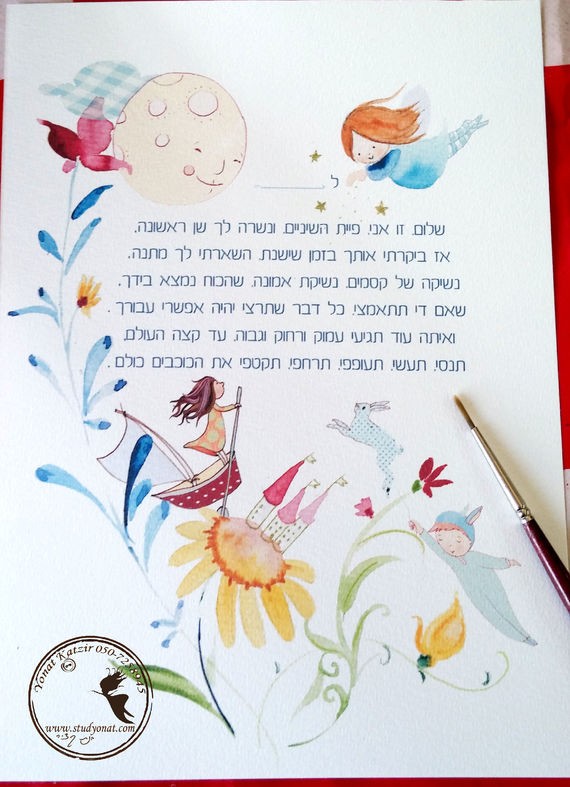 ל ________
שלום, זו אני, פיית השיניים, ונשרה לך שן ראשונה,
אז ביקרתי אותך בזמן שישנת, השארתי לך מתנה.
נשיקה של קסמים, נשיקת אמונה, שהכוח נמצא בידך,
שאם די תתאמצי, כל דבר שתרצי יהיה אפשרי עבורך .
ואיתה עוד תגיעי עמוק ורחוק וגבוה, עד קצה העולם,
תנסי, תעשי, תעופפי, תרחפי, תקטפי את הכוכבים כולם .
© Yonat Katzir 050-72
www.studyonat.com